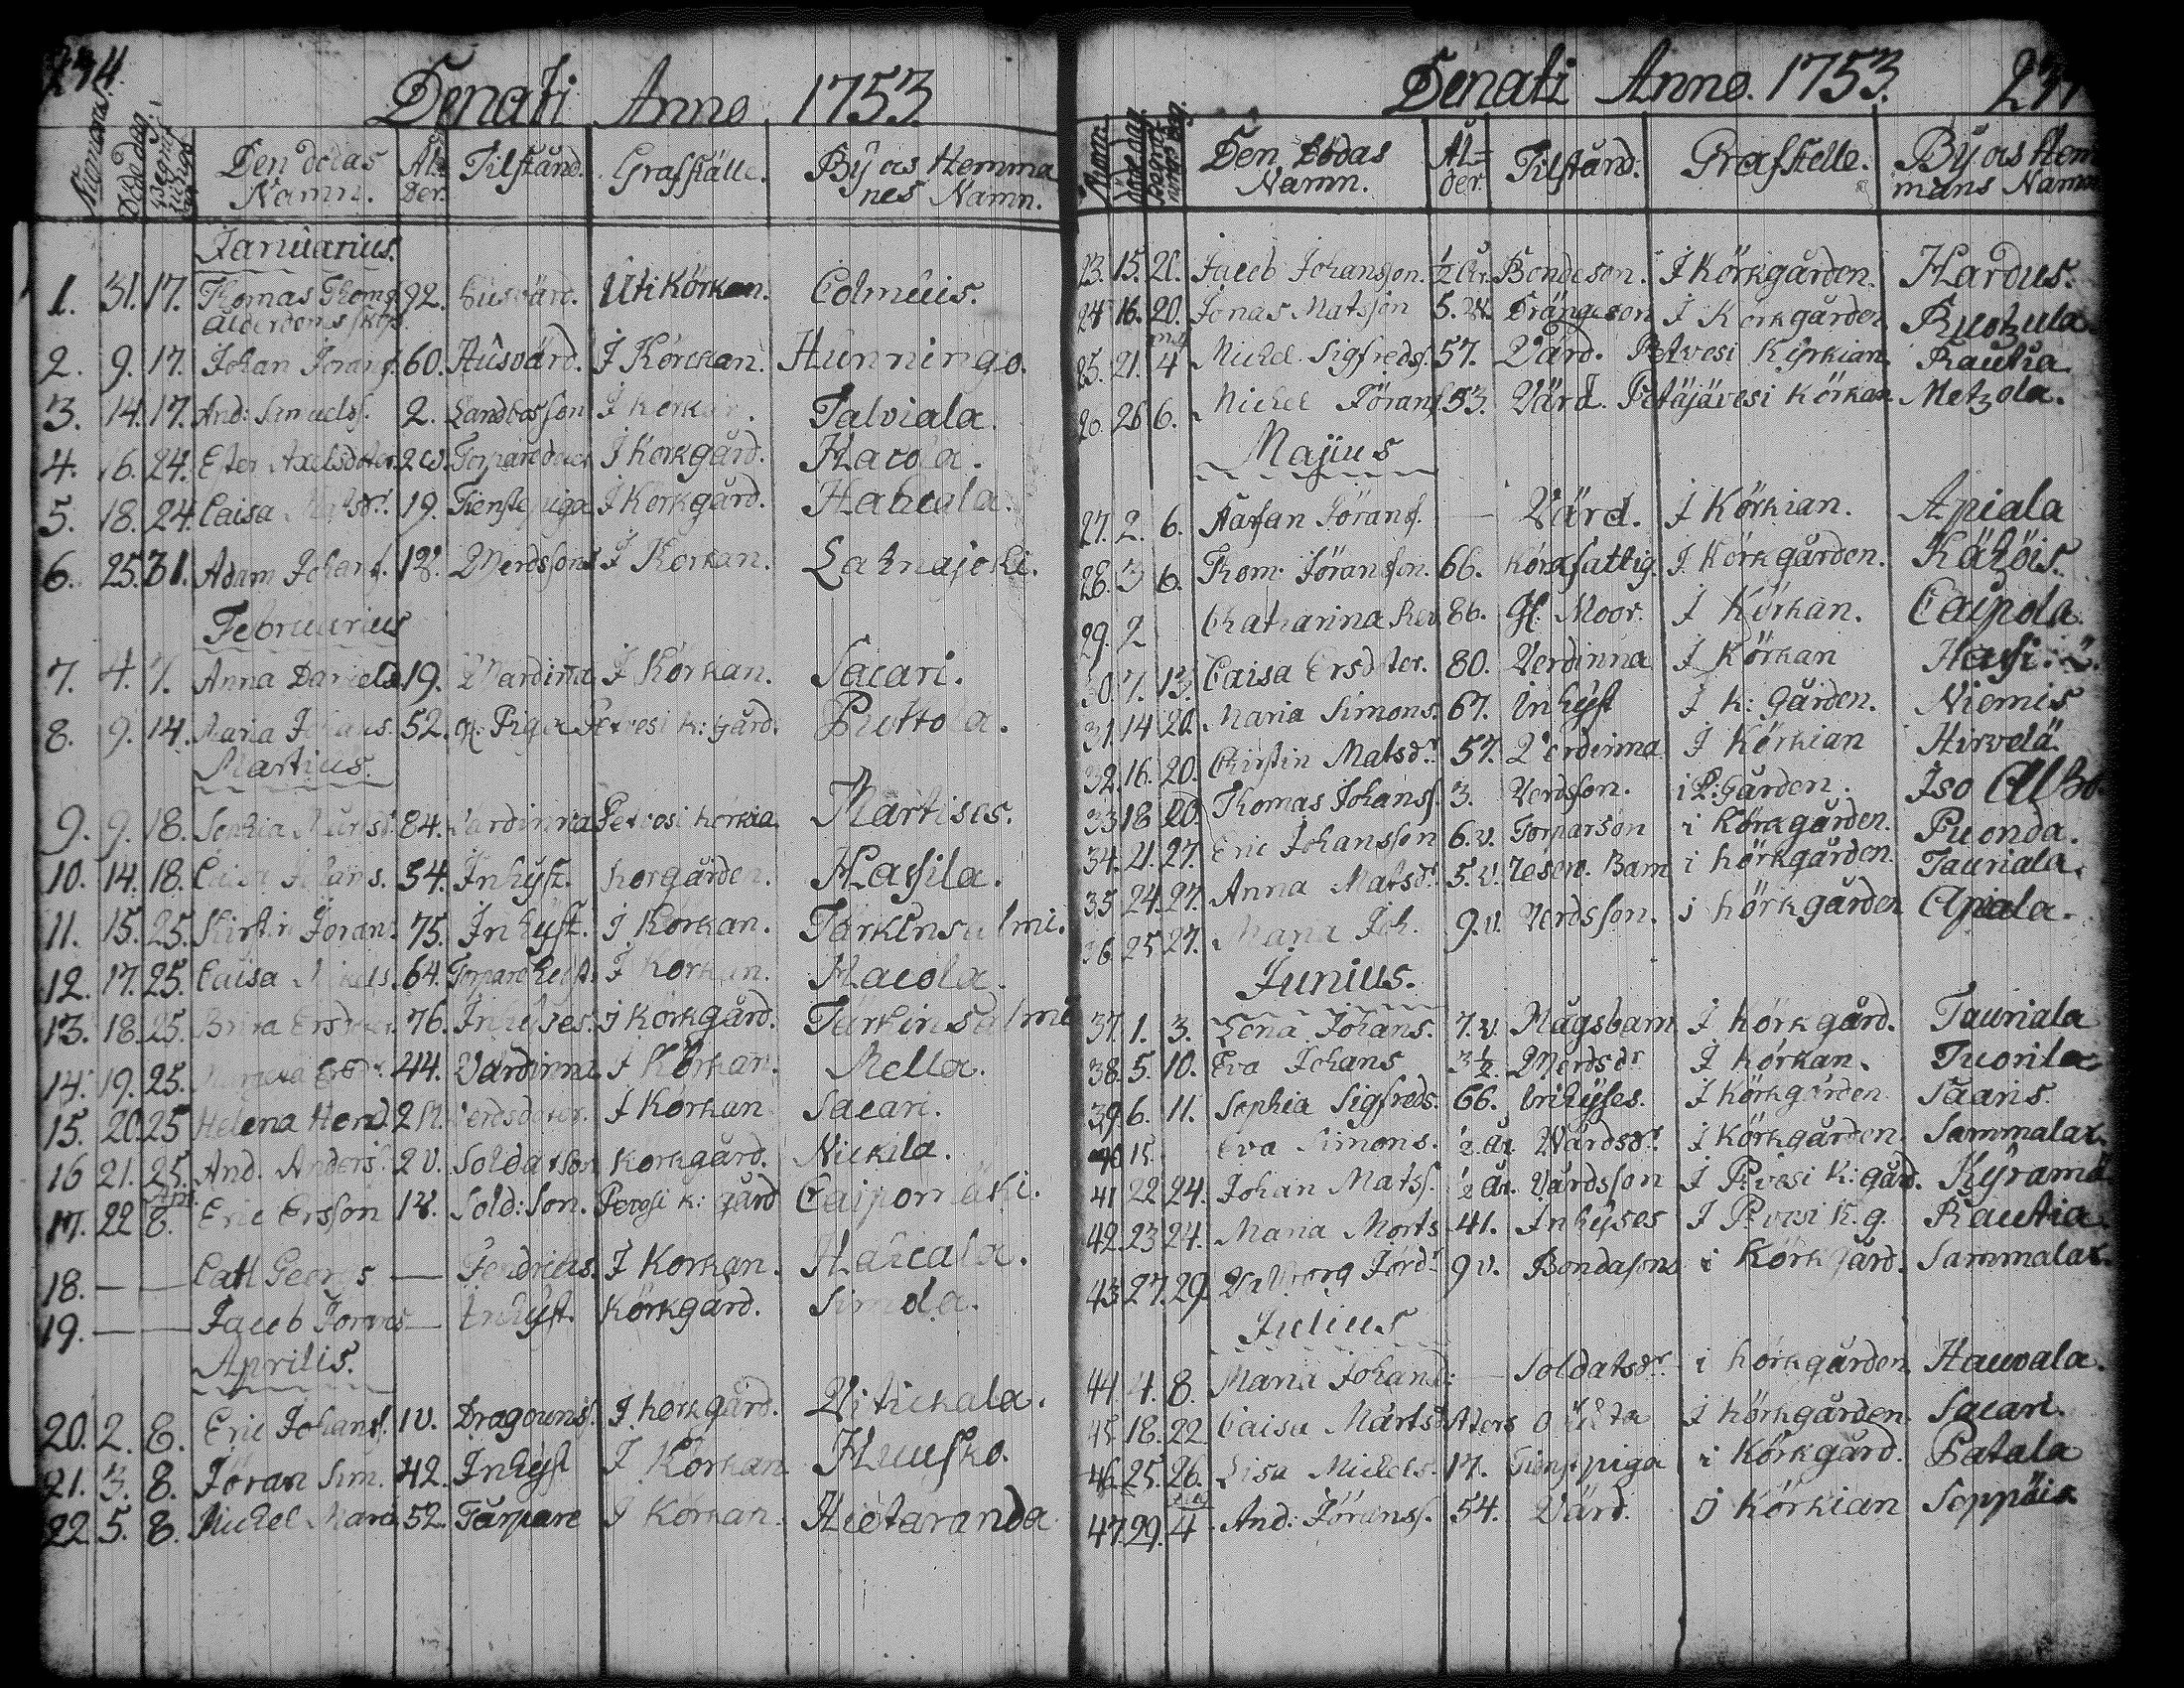 234
Denati Anno 1753
Den dödas Namn. Ål-der. Tilstånd. Grafställe. By os Hemmanes Namn.
Januarius.
1. 31. 17. Thomas Thoms. 92. Husvärd. Uti Körkan. Colmuis.
ålderdoms skrö.
2. 9. 17. Johan Jöranss. 60. Husvärd. I Körckan. Hunningo.
3. 14. 17. And: Simuelss. 2. Landbosson I Korkan. Talviala.
4. 16. 24. Ester Axelsdoter. 2 w. Torparedoter I Korkgård. Hacola.
5. 18. 24. Caisa Matsdr. 19. Tienstepiga I Korkgård. Hahcala.
6. 25. 31. Adam Johans. Werdssons I Korkan. Lahnajoki.
Februarius
7. 4. 7. Anna Daniels 19. Wardinna I Körkan. Sacari.
8. 9. 14. Maria Johans. 52. gl. Piga Petvesi k: gård. Puttola.
Martius.
9. 9. 18. Sophia 84. Vardinna Petvesi korkia Martises.
10. 14. 18. Caisa Johans. 54. Inhyst. korgården. Hassila.
11. 15. 25. Kirstin Jörans. 75. Inhyst. I Korkan. Tärkinsalmi.
12. 17. 25. Caisa Mikels. 64. Torpare I Korkan. Hacola.
13. 18. 25. Brita Ersdoter. 76. Inhyses. I Körkgård. Tärkinsalmi
14. 19. 25. Ersdr. 44. Värdinna I Körkan. Mella.
15. 20. 25 Helena Hend. Verdsdoter. I Korkan Sacari.
16 21. 25. And. Anders. 2 v. Soldatson korkgård. Nickila.
17. 22 Apr. 8. Eric Ersson Sold: Son. Petvesi k: gård
18. — — Cath Georgs — Fendricks. I Korkan. Hahcala.
19. — — Jacob Jörans — Inhyst. Körkgård. Simola.
Aprilis.
20. 2. 8. Eric Johanss. 1 v. Dragouns. I korkgård. Vitickala.
21. 3. 8. Jöran Sim. 42. Inhyst I Körkan Huusko.
22 5. 8. Michel 52. Tårpare I Körkan. Hietaranda
Denati Anno. 1753.
Den Dödas Namn. Ål=der. Tilstånd. Grafstelle. By os Hemmans Namn
23. 15. 20. Jacob Johansson. ½ år. Bondeson. I Körkgården. Hardus.
24 16. 20. Jonas Matsson 5. w. Drängeson I Korkgården Ruohula.
25. 21. 4 Michel Sigfreds. 57. Värd. Petvesi Kiyrkian Rautia
26. 26 6. Michel Jörans. 53. Värd. Petäjävesi Körkan Metzola.
Majus
27. 2. 6. Jörans. — Värd. I Körkian. Apiala
28. 3 6. Thom: Jöransson. 66. Körkfattig. I Körkgården. Kähöis.
29. 2 Chatharina 86. Gl: Moor. I Körkan. Caipola.
30. 7. 13. Caisa Ersdoter. 80. Verdinna I Körkan
31. 14 20. Maria Simons. 67. Inhyst I k: Gården. Niemis
32. 16. 20. Christin Matsdr. 57. Verdinna I Körkian Hirvelä
33 18 20. Thomas Johanss. 3. Verdson. i P: Gården. Iso
34. 21. 27. Eric Johansson 6. v. Torparson i Körkgården. Puonda.
35 24. 27. Anna Matsdr. 5. v. Resen. Barn i körkgården. Tauriala.
36 25 27. Maria Joh. 9. v. Verdsson. i körkgården Apiala.
Junius.
37. 1. 3. Lena Johans. 7. v. Mågsbarn I Körkgård. Tauriala
38. 5. 10. Eva Johans 3½ Werdsdr I körkan. Tuorila
39. 6. 11. Sophia Sigfreds. 66. Inhyses. I Körkgården Saaris.
40 15. Eva Simons. ½ år. Wärdsdr. I Körkgården. Sammalax.
41 22 24. Johan Matss. ½ år. Värdsson I P:vesi k: gård.
42. 23 24. Maria Morts 41. Inhyses I P:vesi K. g. Rautia
43 27. 29. Valborg Jördr. 9 v. Bondasons i Körkgård. Sammalax.
Julius
44 4. 8. Maria Johans: — Soldatsdr. i körkgården. Hauvala.
45. 18. 22 Caisa Mårtsd. I körkgården. Sacari.
46. 25. 26. Lisa Michels. 17. Tienstpiga i Körkgård. Patala
47. 29. 4 And: Jöranss. 54. Värd. I Körkian Seppöis